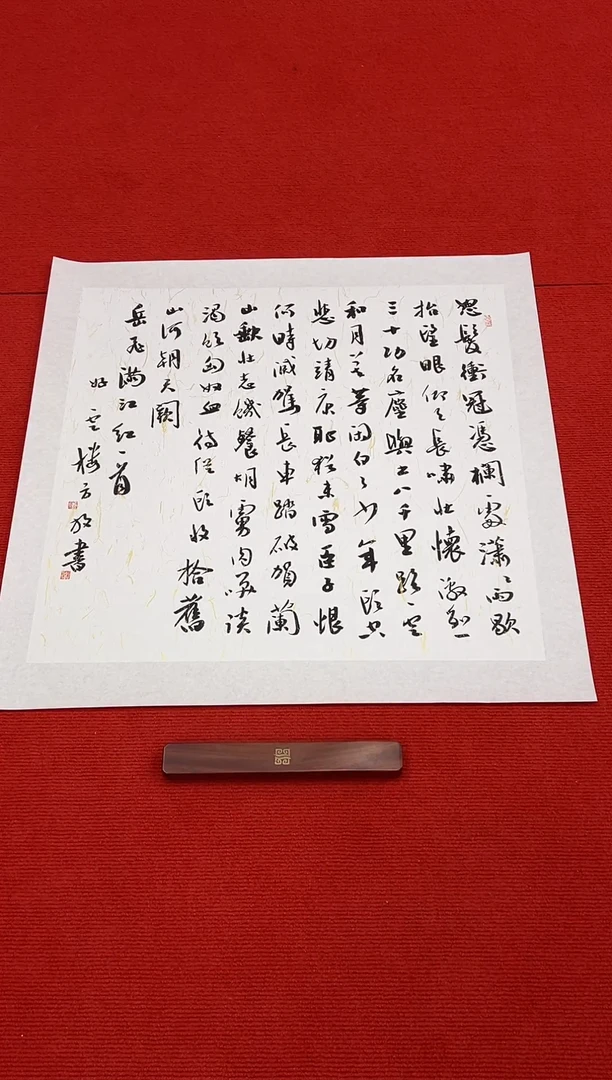 怒髮衝冠憑欄處瀟瀟雨歇
抬望眼仰天長嘯壯懷激烈
三十功名塵與土八千里路雲
和月莫等閑白了少年頭空
悲切靖康恥猶未雪臣子恨
何時滅駕長車踏破賀蘭
山缺壯志饑餐胡虜肉笑談
渴飲匈奴血待從頭收拾舊
山河朝天闕
岳飛滿江紅一首
雲樓方書